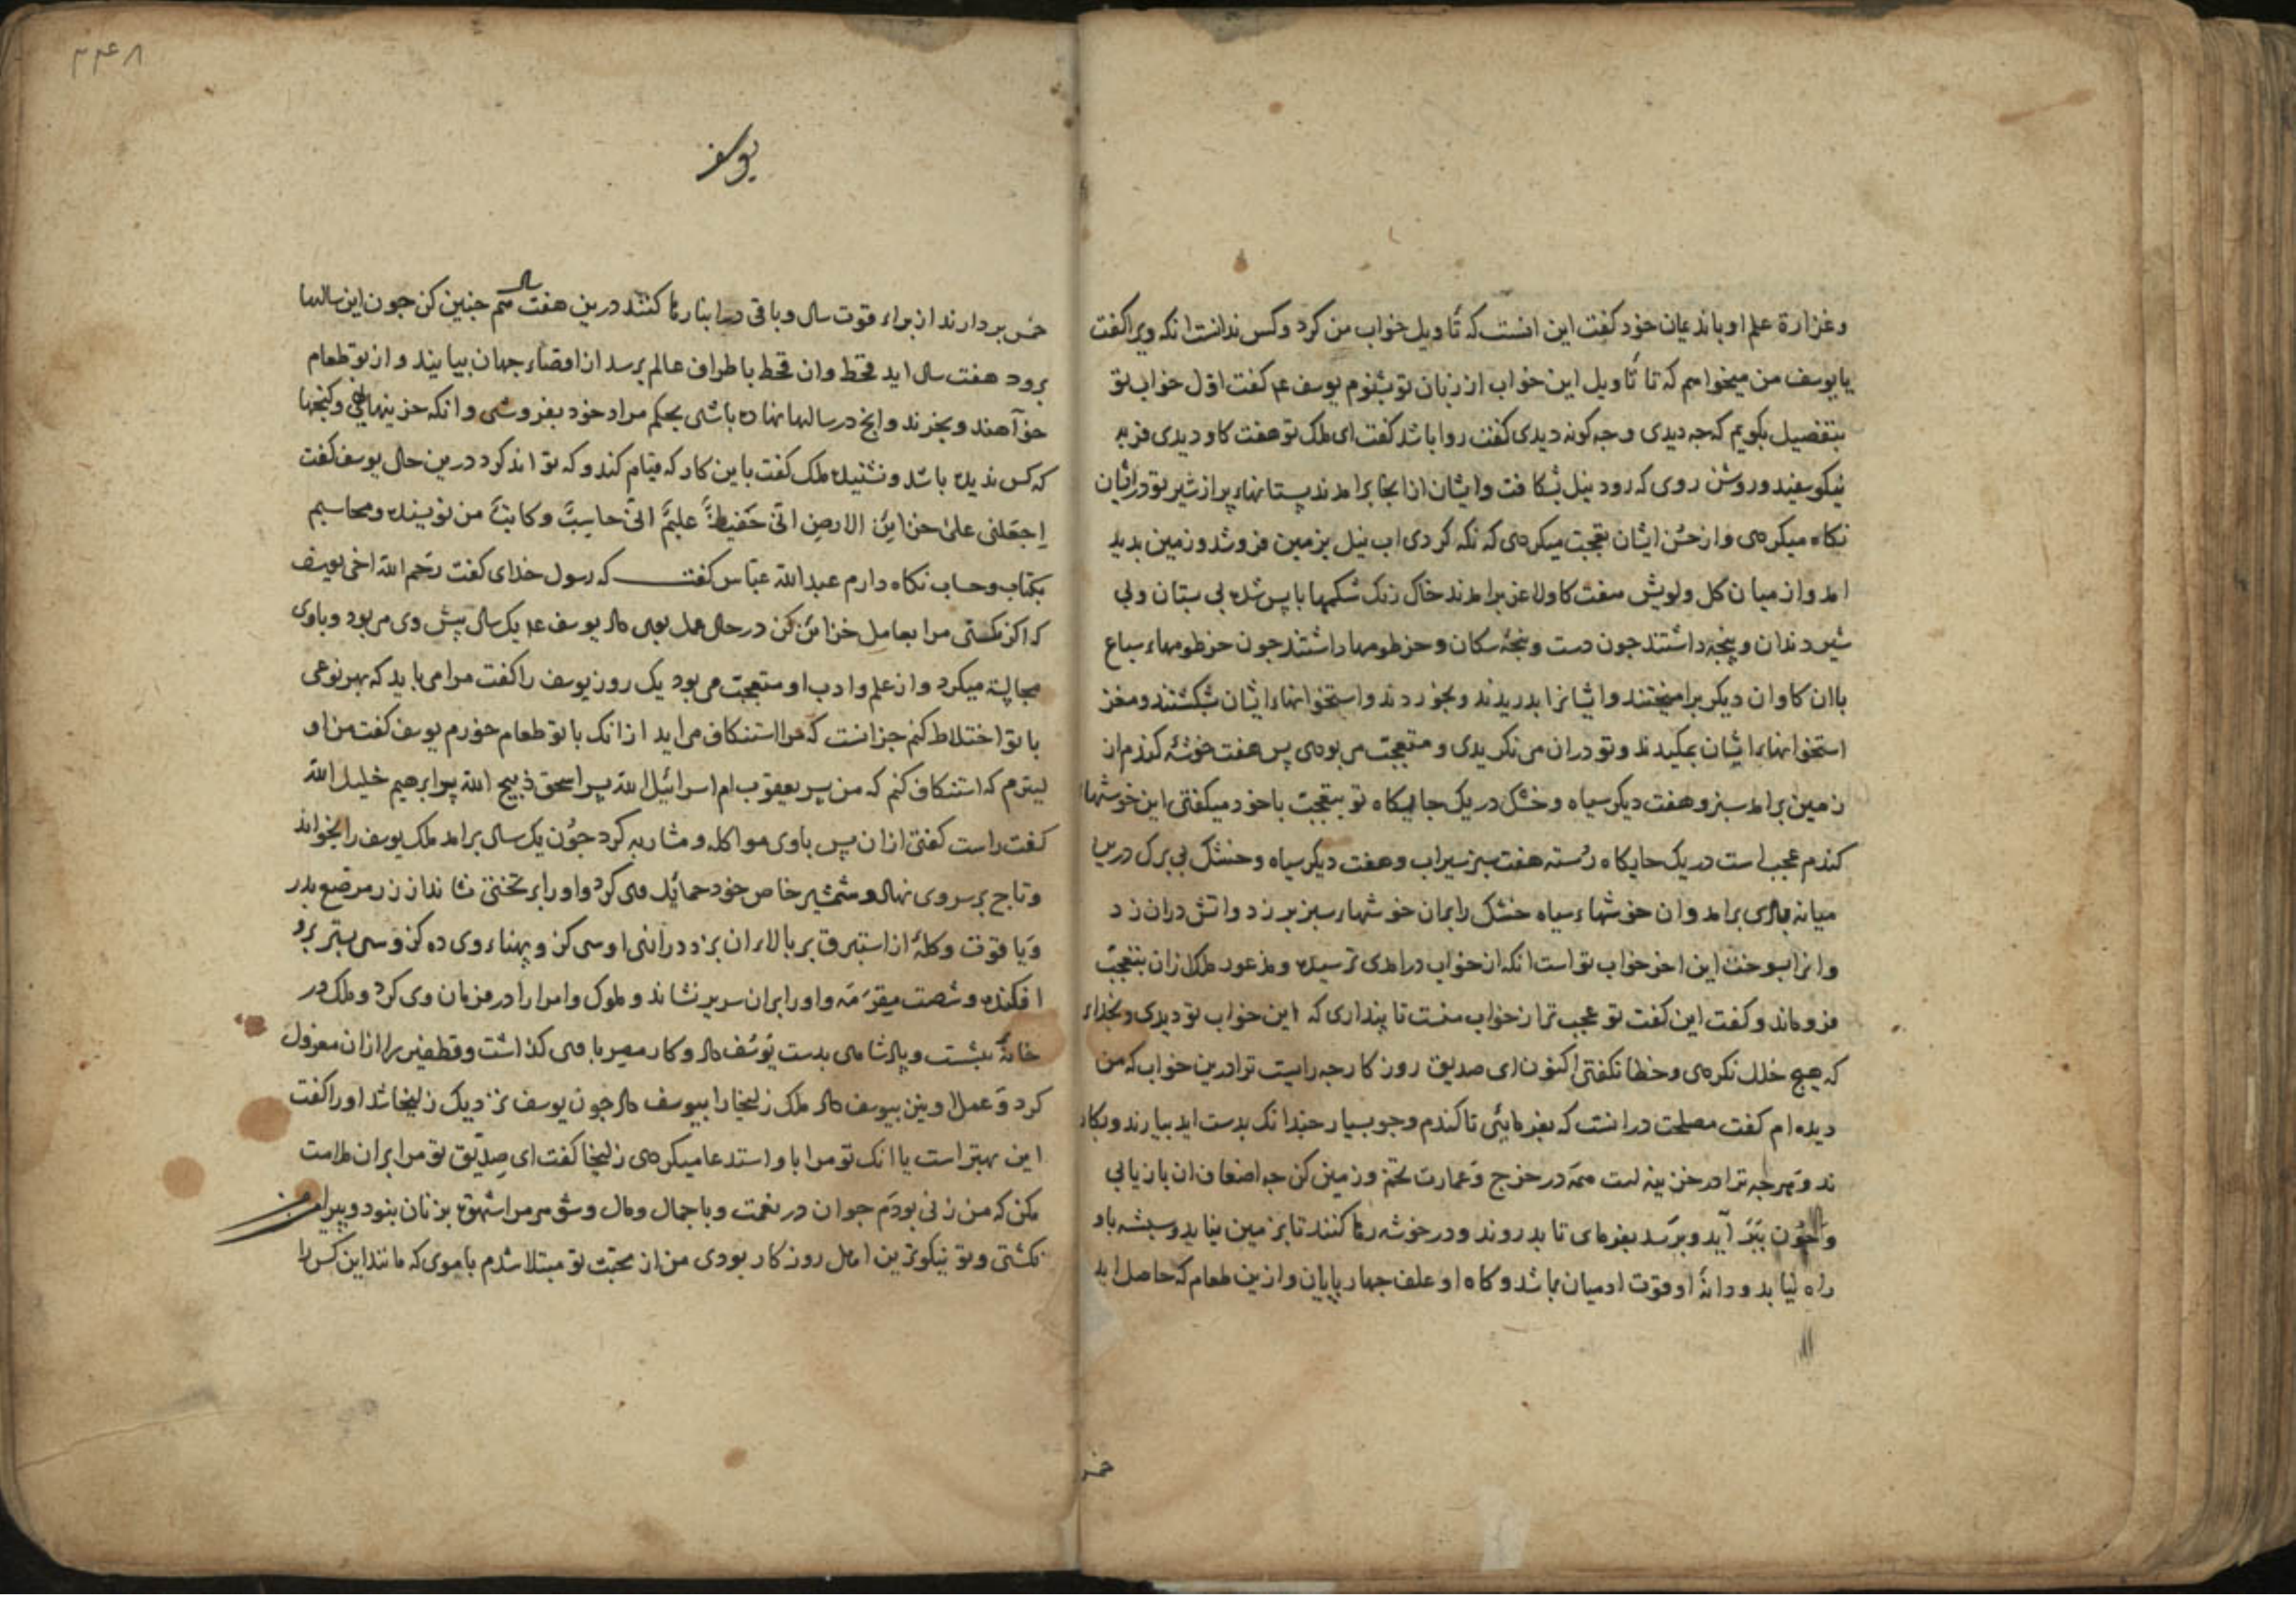 وغزارة علم او با ندیمان خود کفت این انست که تأویل خواب من کرد وکس ندانست انکه ویرا کفت
یا یوسف من میخواهم که تا تأویل این خواب از زبان تو بشنوم یوسف عم کفت اوّل خواب تو
بتفصیل بکویم که جه دیدی وجه کونه دیدی کفت روا باشد کفت ای ملک تو هفت کاو دیدی فربه
نیکو سفید وروشن روی که رود نیل بشکافت وایشان از انجا برامدند پستانهاء پر از شیر تو در ایشان
نکاه میکردی واز حسن ایشان تعجّب میکردی که نکه کردی اب نیل بزمین فروشد وزمین بدید
امد واز میان کل ولویش هفت کاو لاغر برامدند خاک رنک شکمها با پس شده بی بستان وبی
شیر دندان وپنجه داشتند جون دست وپنجهٔ سکان وخرطومها داشتند جون خرطومهاء سباع
با ان کاوان دیکر برامیختند وایشانرا بدریدند وبخوردند واستخوانهاء ایشان بشکستند ومغز
استخوانهاء ایشان بمکیدند وتو دران می نکریدی ومتعجّب می بودی پس هفت خوشه کندم از
زمین برامد سبز وهفت دیکر سیاه وخشک در یک جایکاه تو بتعجّب با خود میکفتی این خوشها
کندم عجب است در یک جایکاه رُسته هفت سبز سیراب وهفت دیکر سیاه وخشک بی برک درین
میانه بادی برامد وان خوشهاء سیاه خشک را بران خوشهاء سبز بر زد واتش دران زد
وانرا بسوخت این اخر خواب تو است انکه از خواب درامدی ترسیده ومذعور ملک زان بتعجّب
فروماند وکفت این کفت تو عجب تر از خواب منست تا پنداری که این خواب تو دیدی وبخداء
که هیج خلل نکردی وخطا نکفتی اکنون ای صدیق روزکار جه رایست ترا درین خواب که من
دیده ام کفت مصلحت درانست که بفرمایی تا کندم وجو بسیار جندانک بدست اید بیارند وبکار
ند وهرجه ترا در خزینه است همه در خرج وعمارت تخم وزمین کن جه اضعاف ان بازیابی
وجون ببر آید وبرسد بفرمای تا بدروند ودر خوشه رها کنند تا بزمین نیاید وسبشه باو
راه نیابد ودانهٔ او قوت ادمیان باشد وکاه او علف جهارپایان وازین طعام که حاصل اید
خمس
۲۴۸
یوسف
خمس بردارند از براء قوت سال وباقی در انبار رها کنند درین هفت سال هم جنین کن جون این سالها
برود هفت سال اید قحط وان قحط باطراف عالم برسد از اقصاء جهان بیایند واز تو طعام
خوآهند وبخرند وانج در سالها نهاده باشی بحکم مراد خود بفروشی وانکه خزینها نهی وکنجها
که کس ندیده باشد ونشنیده ملک کفت باین کار که قیام کند وکه تواند کرد درین حال یوسف کفت
اِجعَلنی علیٰ خزائِن الارضِ انّی حَفیظٌ علیمٌ انّی حاسِبٌ وکاتبٌ من نویسنده ومحاسبم
بکتاب وحساب نکاه دارم عبدالله عباس کفت که رسول خدای کفت رَحِم الله اخی یوسف
که اکر نکفتی مرا بعامل خزائن کن در حال عمل بوی داد یوسف عم یک سال پیش وی می بود وباوی
مجالسة میکرد واز علم وادب او متعجّب می بود یک روز یوسف را کفت مرا می باید که بهر نوعی
با تو اختلاط کنم جزانست که مرا استنکاف می اید ازانک با تو طعام خورم یوسف کفت من او
لیترم که استنکاف کنم که من پسر یعقوب ام اسرائیل الله پسر اسحق ذبیح الله پسر ابرهیم خلیل الله
کفت راست کفتی ازان پس باوی مواکله ومشاربه کرد جون یک سال برامد ملک یوسف را بخواند
وتاج بر سر وی نهاد وشمشیر خاص خود حمائل وی کرد واو را بر تختی نشاند از زر مرصّع بدر
ویاقوت وکلهٔ از استبرق بر بالاء ان بزد درازنی او سی کن وپهناء وی ده کن وسی بستر برو
افکنده وشصت مِقرَمَه واو را بران سریر نشاند وملوک وامرا را در فرمان وی کرد وملک در
خانهٔ بنشست وپادشاهی بدست یوسُف داد وکار مصر با وی کذاشت وقطفیر را ازان معزول
کرد وَعمل او نیز بیوسف داد ملک زلیخا را بیوسف داد جون یوسف نزدیک زلیخا شد او را کفت
این بهتر است یا انک تو مرا با او استدعا میکردی زلیخا کفت ای صِدّیق تو مرا بران ملامت
مکن که من زنی بودم جوان در نعمت وبا جمال ومال وشوهر مرا شهوة زنان بنود وپیرامن من
نکشتی وتو نیکوترین اهل روزکار بودی من از محبّت تو مبتلا شدم باموی که مانند این کس را